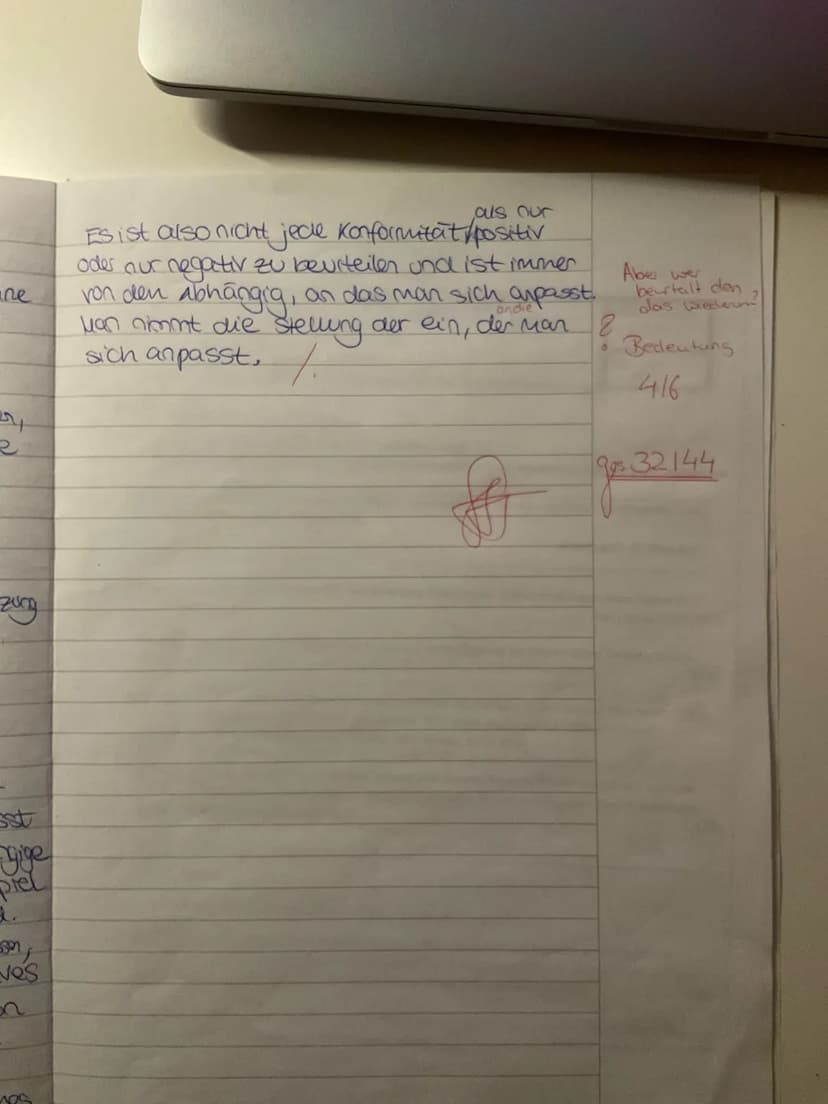 als nur
Es ist also nicht jede Konformität/positiv
oder nur negativ zu beurteilen und ist immer
von den abhängig, an das man sich anpasst.
an die
Man nimmt die Stellung der ein, der man
sich anpasst. /.
Aber wer
beurteilt den
das wiederum?
?
Bedeutung
4/6
ges. 32/44
ine
en,
e
zung
sst
gige
piel
d.
sen,
ves
on